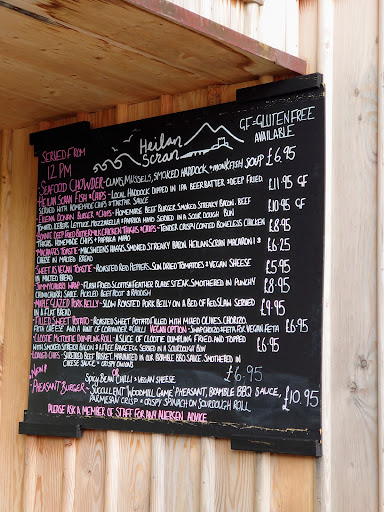 Heilan
Scran
GF = GLUTEN FREE
AVAILABLE
SERVED FROM
12 PM
SEAFOOD CHOWDER - CLAMS, MUSSELS, SMOKED HADDOCK + MONKFISH SOUP £6.95
HEILAN SCRAN FISH + CHIPS - LOCAL HADDOCK DIPPED IN IPA BEER BATTER + DEEP FRIED £11.95 GF
SERVED WITH HOMEMADE CHIPS + TARTARE SAUCE
BURGER + CHIPS - HOMEMADE BEEF BURGER, SMOKED STREAKY BACON, BEEF £10.95 GF
TOMATO, ICEBERG LETTUCE, MOZZARELLA + PAPRIKA MAYO SERVED IN A SOUR DOUGH BUN
CHICKEN THIGHS + CHIPS - TENDER CRISPY COATED BONELESS CHICKEN £8.95
THIGHS, HOMEMADE CHIPS + PAPRIKA MAYO
TOASTIE - MACSWEENS HAGGIS, SMOKED STREAKY BACON, HEILAN SCRAN MACARONI + £6.25
CHEESE IN MALTED BREAD
SWEET AS VEGAN TOASTIE - ROASTED RED PEPPERS, SUN DRIED TOMATOES + VEGAN CHEESE £5.95
IN MALTED BREAD
CHIMICHURRI WRAP - FLASH FRIED SCOTCH FEATHER BLADE STEAK, SMOTHERED IN PUNCHY £8.95
CHIMICHURRI SAUCE, PICKLED BEETROOT + RADISH
MAPLE GLAZED PORK BELLY - SLOW ROASTED PORK BELLY ON A BED OF RED SLAW SERVED £9.95
IN A FLAT BREAD
FILLED SWEET POTATO - ROASTED SWEET POTATO FILLED WITH MIXED OLIVES, CHORIZO, £6.95
FETA CHEESE AND A HINT OF CORIANDER + CHILLI VEGAN OPTION - SWAP CHORIZO + FETA FOR VEGAN FETA
CLOOTIE MCTOOTIE DUMPLING ROLL - A SLICE OF CLOOTIE DUMPLING FRIED AND TOPPED £6.95
WITH SMOKED STREAKY BACON + A FREE RANGE EGG SERVED IN A SOURDOUGH BUN
LOADED CHIPS - SHREDDED BEEF BRISKET MARINATED IN OUR BRAMBLE BBQ SAUCE, SMOTHERED IN
CHEESE SAUCE + CRISPY ONIONS
OR £6.95
NEW! SPICY BEAN CHILLI + VEGAN CHEESE
PHEASANT BURGER - SUCCULENT WOODMILL GAME PHEASANT, BRAMBLE BBQ SAUCE, £10.95
PARMESAN CRISP + CRISPY SPINACH ON SOURDOUGH ROLL
PLEASE ASK A MEMBER OF STAFF FOR ANY ALLERGEN ADVICE